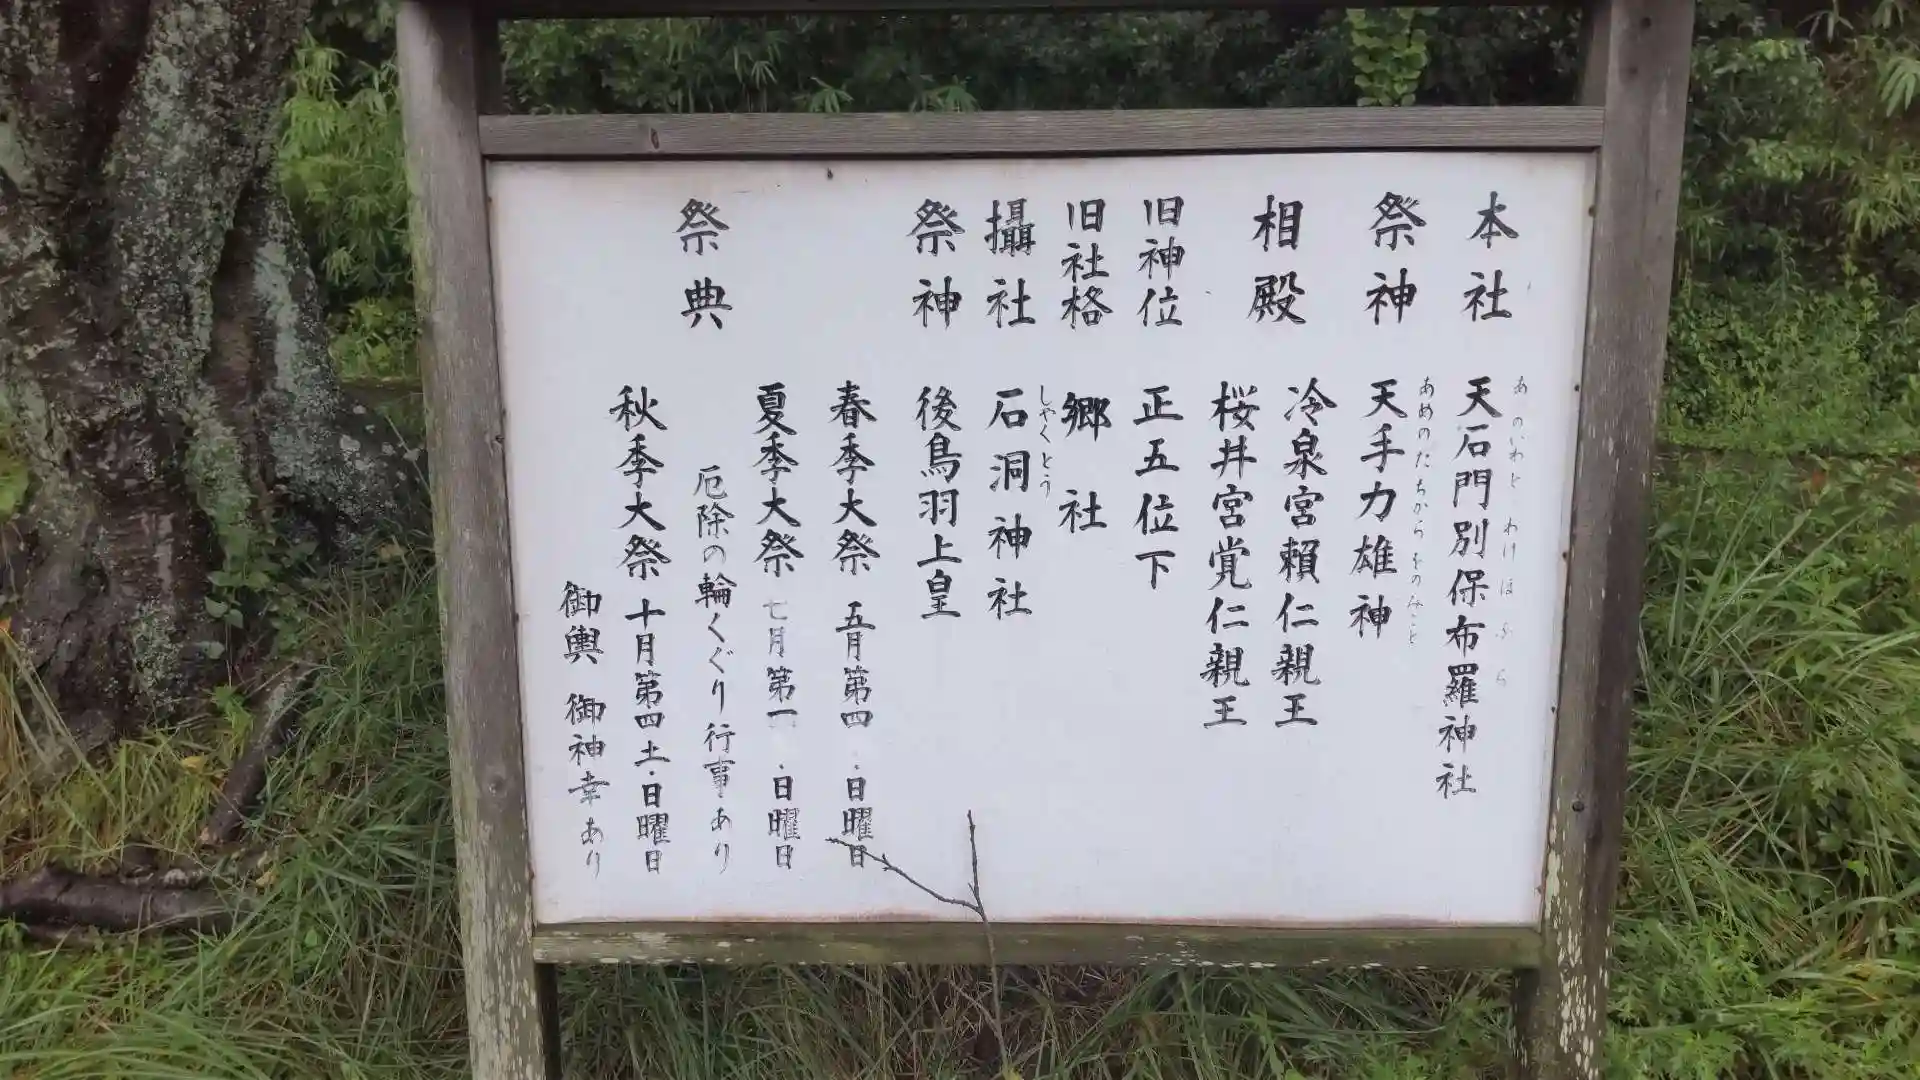 本社 天石門別保布羅神社
あのいわとわけほふら
祭神 天手力雄神
あめのたちからをのみこと
相殿 冷泉宮頼仁親王
桜井宮覚仁親王
旧神位 正五位下
旧社格 郷社
攝社 石洞神社
しゃくとう
祭神 後鳥羽上皇
祭典 春季大祭 五月第四 ・日曜日
夏季大祭 七月第一 ・日曜日
厄除の輪くぐり行事あり
秋季大祭 十月第四土・日曜日
御輿 御神幸あり